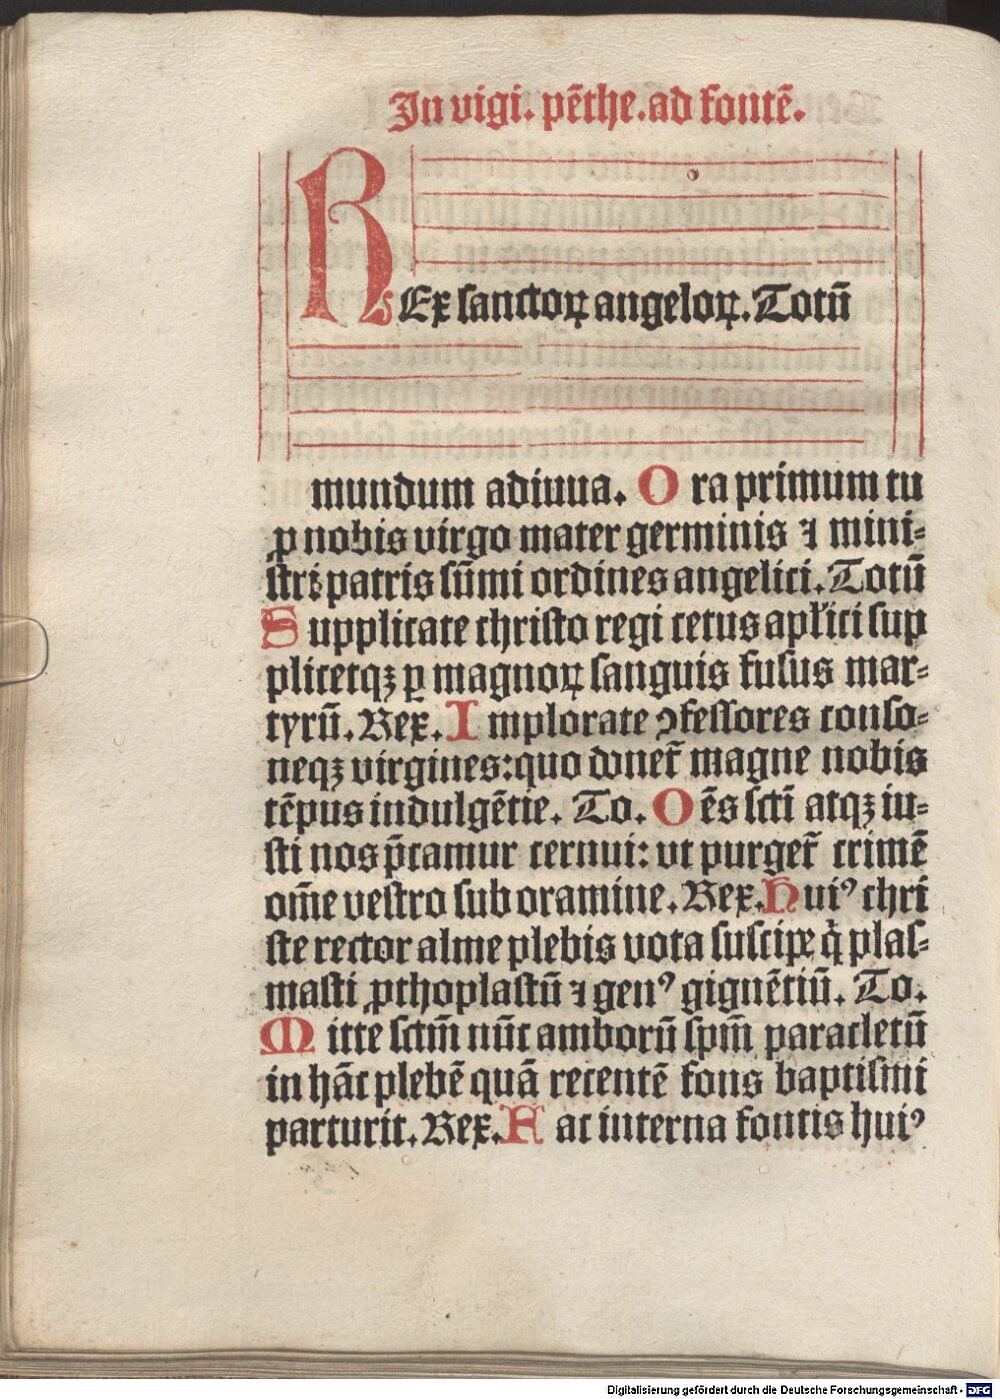 In vigi. pēthe. ad fontē.
REx sanctoꝝ angeloꝝ. Totū
mundum adiuua. Ora primum tu
ꝓ nobis virgo mater germinis ⁊ mini⸗
stri patris sūmi ordines angelici. Totū
Supplicate christo regi cetus apl'ici sup
plicetqꝫ ꝑ magnoꝝ sanguis fusus mar⸗
tyrū. Rex. Implorate ꝯfessores conso⸗
neqꝫ virgines: quo donet᷑ magne nobis
tēpus indulgētie. To. Oēs sctī atqꝫ iu⸗
sti nos p̄camur cernui: vt purget᷑ crimē
om̄e vestro sub oramine. Rex. Huiꝰ chri
ste rector alme plebis vota suscipe q̇ plas⸗
masti ꝓthoplastū ⁊ genꝰ gignētiū. To.
Mitte sctm̄ nūc amborū spm̄ paracletū
in hāc plebē quā recentē fons baptismi
parturit. Rex. Fac interna fontis huiꝰ
Digitalisierung gefördert durch die Deutsche Forschungsgemeinschaft - DFG